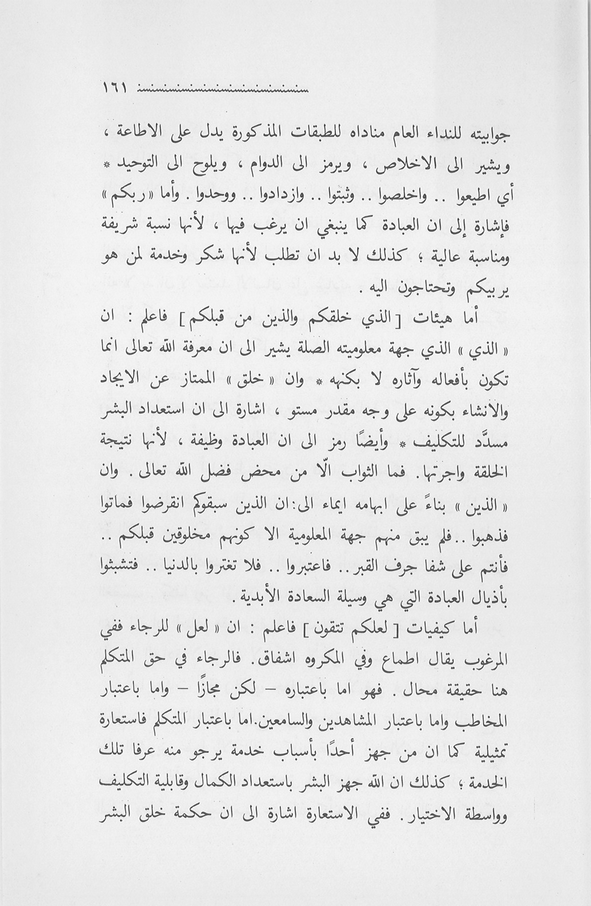 ١٦١
جوابيته للنداء العام مناداه للطبقات المذكورة يدل على الاطاعة ،
ويشير الى الاخلاص ، ويرمز الى الدوام ، ويلوح الى التوحيد *
أي اطيعوا .. واخلصوا .. وثبتوا .. وازدادوا .. ووحدوا . وأما « ربكم »
فإشارة إلى ان العبادة كما ينبغي ان يرغب فيها ، لأنها نسبة شريفة
ومناسبة عالية ؛ كذلك لا بد ان تطلب لأنها شكر وخدمة لمن هو
يربيكم وتحتاجون اليه .
أما هيئات [ الذي خلقكم والذين من قبلكم ] فاعلم : ان
« الذي » الذي جهة معلوميته الصلة يشير الى ان معرفة الله تعالى انما
تكون بأفعاله وآثاره لا بكنهه * وان « خلق » الممتاز عن الايجاد
والانشاء بكونه على وجه مقدر مستو ، اشارة الى ان استعداد البشر
مسدَّد للتكليف * وأيضًا رمز الى ان العبادة وظيفة ، لأنها نتيجة
الخلقة واجرتها . فما الثواب الّا من محض فضل الله تعالى . وان
« الذين » بناءً على ابهامه ايماء الى: ان الذين سبقوكم انقرضوا فماتوا
فذهبوا .. فلم يبق منهم جهة المعلومية الا كونهم مخلوقين قبلكم ..
فأنتم على شفا جرف القبر .. فاعتبروا .. فلا تغتروا بالدنيا .. فتشبثوا
بأذيال العبادة التي هي وسيلة السعادة الأبدية .
أما كيفيات [ لعلكم تتقون ] فاعلم : ان « لعل » للرجاء ففي
المرغوب يقال اطماع وفي المكروه اشفاق. فالرجاء في حق المتكلم
هنا حقيقة محال . فهو اما باعتباره – لكن مجازًا – واما باعتبار
المخاطب واما باعتبار المشاهدين والسامعين.اما باعتبار المتكلم فاستعارة
تمثيلية كما ان من جهز أحدًا بأسباب خدمة يرجو منه عرفا تلك
الخدمة ؛ كذلك ان الله جهز البشر باستعداد الكمال وقابلية التكليف
وواسطة الاختيار . ففي الاستعارة اشارة الى ان حكمة خلق البشر